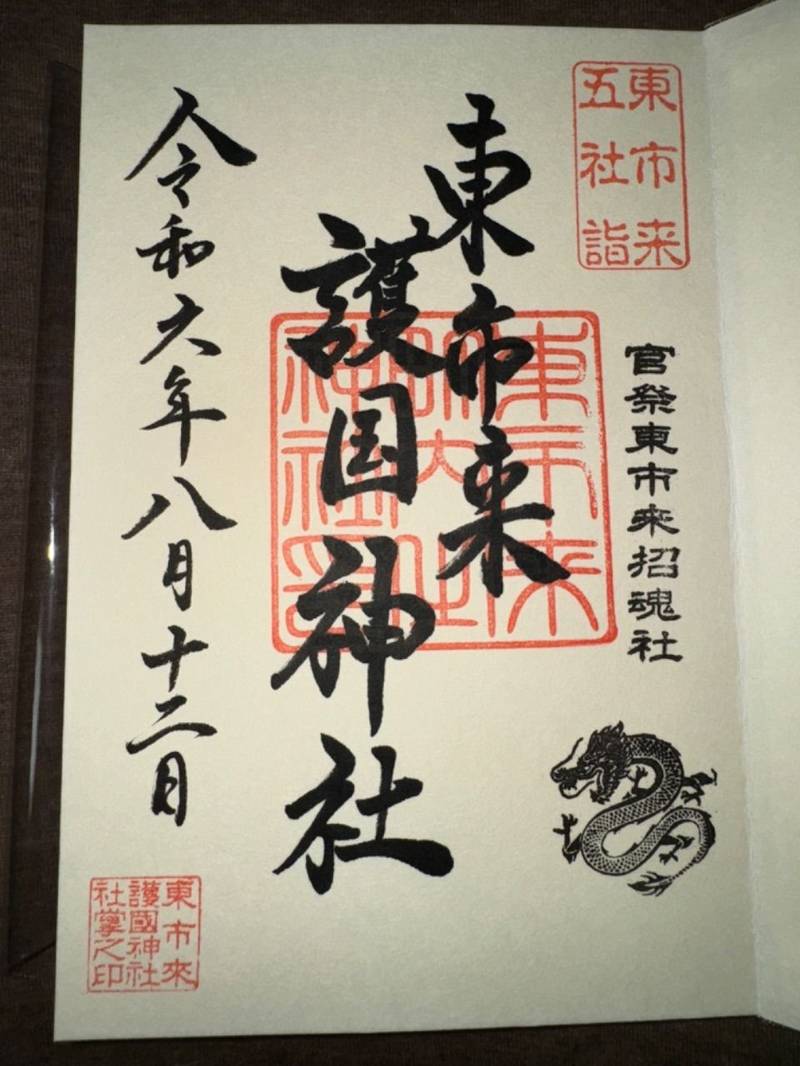 東市来
五社詣
官祭東市来招魂社
東市来
護国神社
東市来
令和六年八月十二日
東市來
護國神社
社掌之印